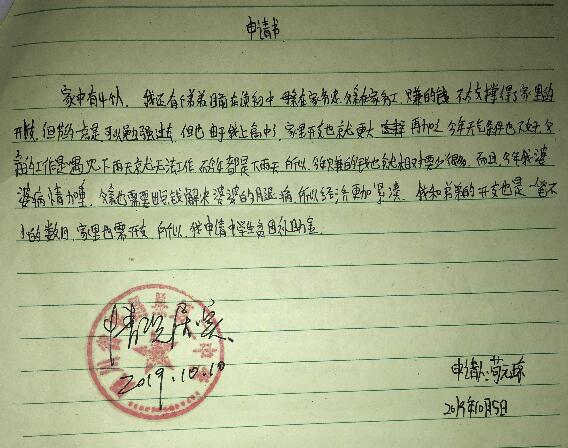 申请书
家中有4个人,我还有个弟弟目前在读初中 母亲在家务农,父亲在家务工,父赚的钱 不太支撑得了家里的
开支,但节约一点是可以勉强过去,但也由于我上高中了,家里开支也就更大 再加上今年天气条件也不好,父
亲的工作是遇见下雨天就无法工作,而今年都是下雨天 所以,今年赚的钱也就相对要少很多,而且,今年我婆
婆病情加重,父亲也需要出钱解决婆婆的 病,所以经济更加紧凑,我和弟弟的开支也是一笔不
小的数目,家里也需开支,所以,我申请中学生贫困补助金
情况属实、
2019.10.10
申请人:苟元琼
2019年10月5日